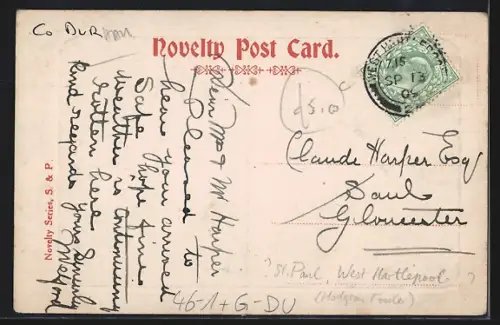 Co DUR
Novelty Post Card.
WEST HARTLEPOOL
715
SP 13
05
Dear Mr & Mrs Harper
Pleased to
hear you arrived
Safe hope fine
weather is continuing
rotten here
Kind regards yours Sincerely
Claude Harper Esq
Gloucester
Novelty Series, S. & P.
St. Paul, West Hartlepool
46-1+G-DU